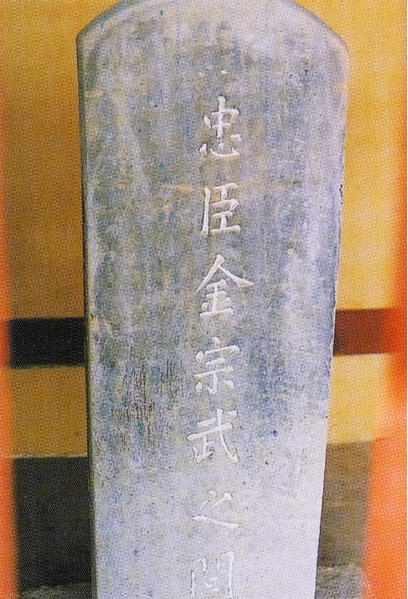 忠臣金宗武之閭